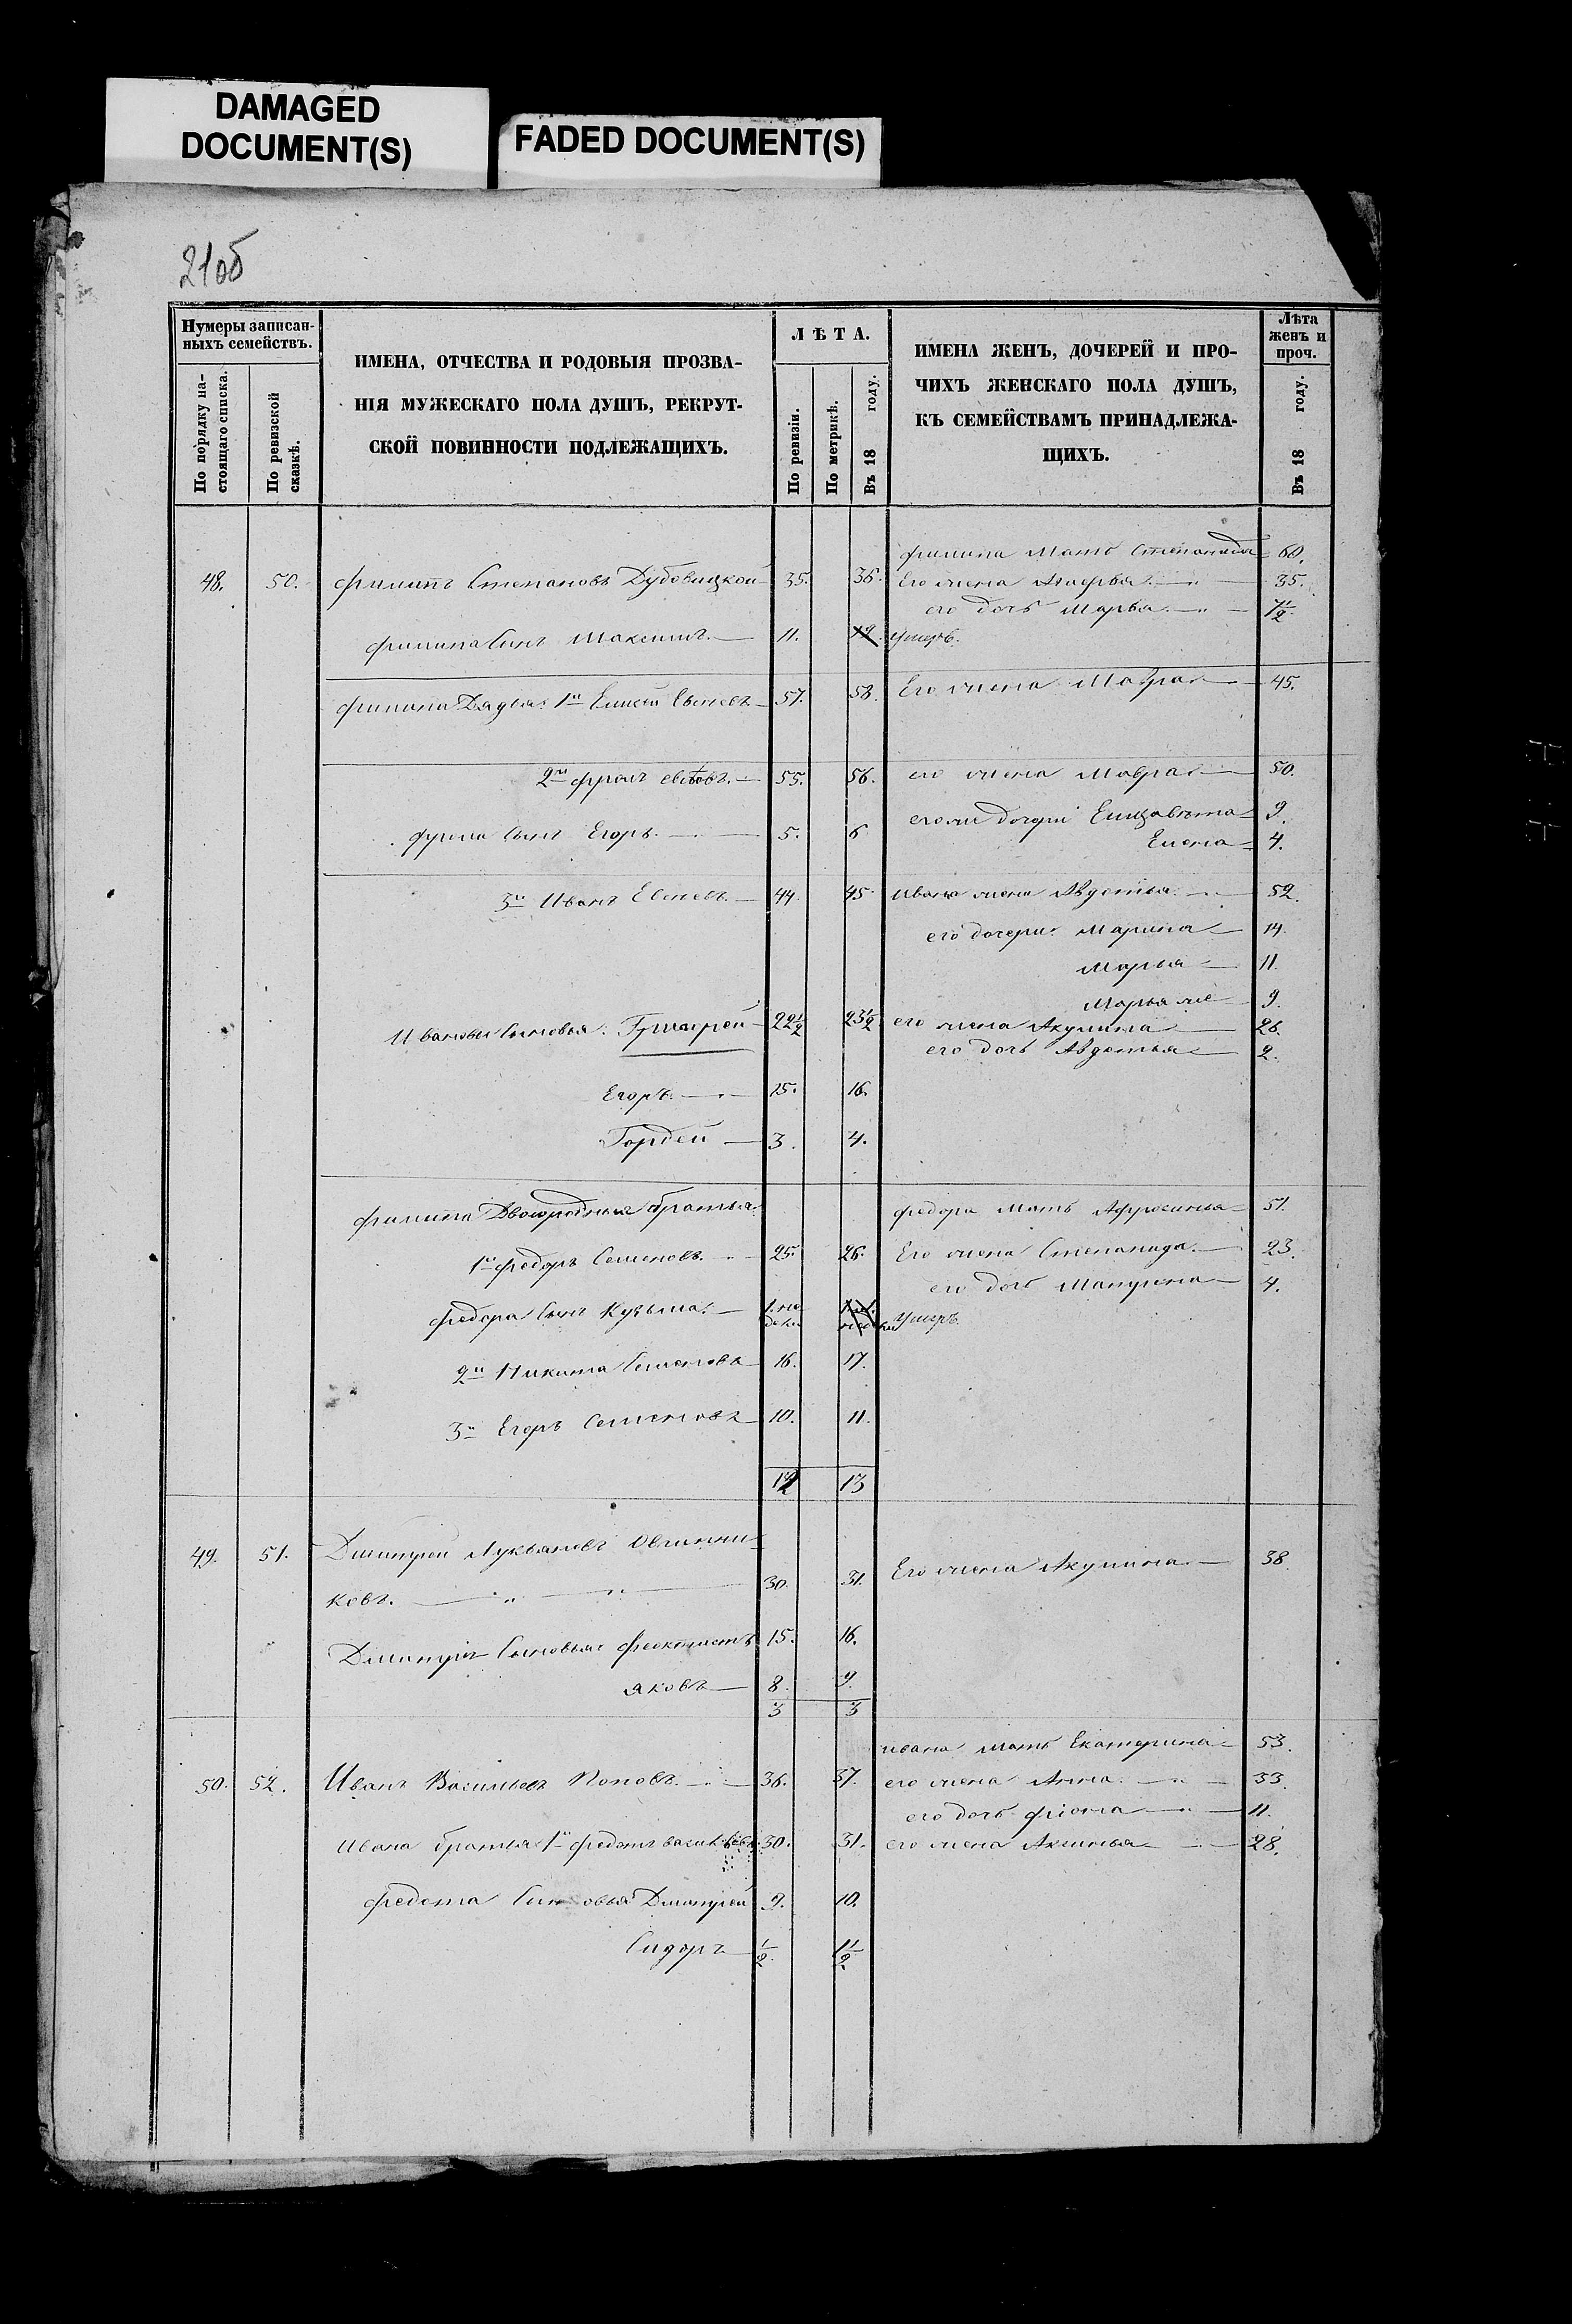 DAMAGED
DOCUMENT(S)
FADED DOCUMENT(S)
21об
Нумеры записан-
ныхъ семействъ.
По порядку на-
стоящаго списка.
По ревизской
сказкѣ.
ИМЕНА, ОТЧЕСТВА И РОДОВЫЯ ПРОЗВА-
НІЯ МУЖЕСКАГО ПОЛА ДУШЪ, РЕКРУТ-
СКОЙ ПОВИННОСТИ ПОДЛЕЖАЩИХЪ.
ЛѢТА.
По ревизіи.
По метрикѣ.
Въ 18 году.
ИМЕНА ЖЕНЪ, ДОЧЕРЕЙ И ПРО-
ЧИХЪ ЖЕНСКАГО ПОЛА ДУШЪ,
КЪ СЕМЕЙСТВАМЪ ПРИНАДЛЕЖА-
ЩИХЪ.
Лѣта
женъ и
проч.
Въ 18 году.
филипа Мать Степанида 60.
48. 50. филипъ Степановъ Дубовицкой 35. 36. Его жена 35.
его дочь Марья 7 1/2
филипа Сынъ Максимъ. 11. 12. умеръ.
филипа Дядья: 1й 57. 58. Его жена Мавра 45.
2й фролъ 55. 56. его жена Мавра 50.
его же дочери Елизавѣта 9.
Сынъ Егоръ. 5. 6
Елена 4.
3й Иванъ 44. 45. Ивана жена Авдотья 52.
его дочери: Марина 14.
Марья 11.
Марья же 9.
Ивановы Сыновья: Григорей 22 1/2 23 1/2 его жена Акулина 26.
его дочь Авдотья 2.
Егоръ. 15. 16.
Гордей 3. 4.
филипа Двоюродныя братья: федора мать Афросинья 51.
1й федоръ Семеновъ. 25. 26. Его жена Степанида. 23.
его дочь 4.
федора Сынъ Кузьма. умеръ.
2й Никита Семеновъ 16. 17.
3й Егоръ Семеновъ 10. 11.
12 13
49. 51. Дмитрей Лукьяновъ Овчинни-
ковъ. 30. 31. Его жена Акулина 38
Дмитрія Сыновья: Феоктистъ 15. 16.
Яковъ 8. 9.
3 3
ивана мать Екатерина 53.
50. 52. Иванъ Васильевъ Поповъ. 36. 37. его жена Анна. 33.
его дочь 11.
Ивана братья: 1й федотъ 30. 31. его жена Аксинья 28.
федота Сыновья Дмитрей 9. 10.
Сидоръ 1/2 1 1/2